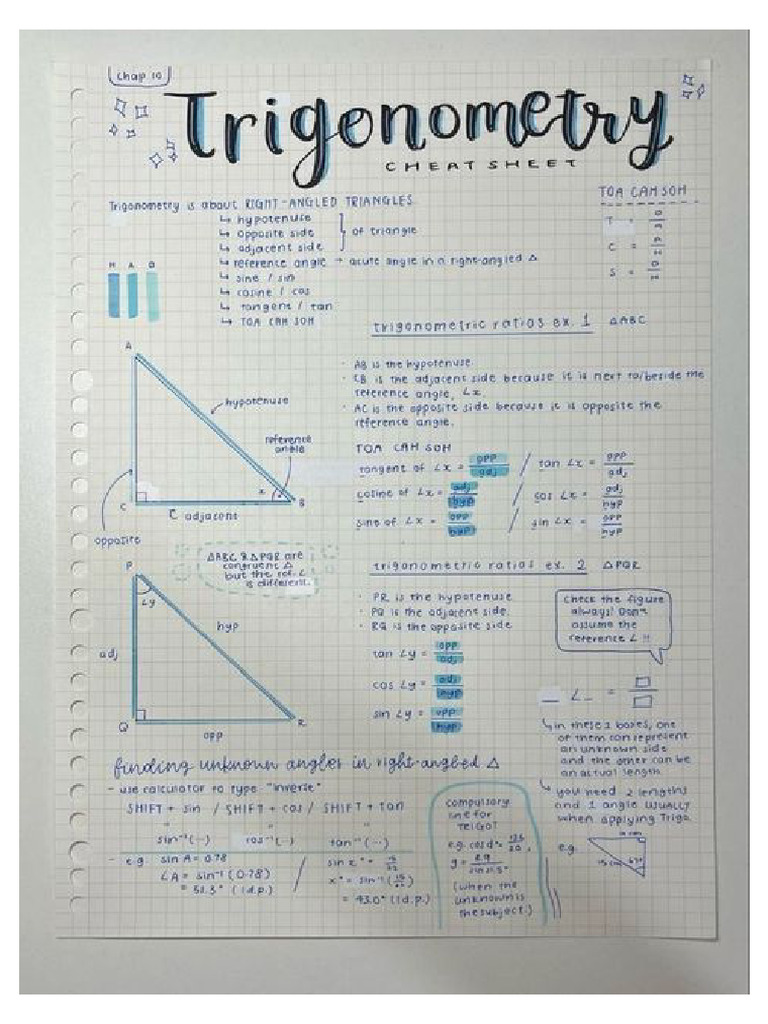 Chap 10
Trigonometry
CHEAT SHEET
Trigonometry is about RIGHT-ANGLED TRIANGLES
↳ hypotenuse
↳ opposite side } of triangle
↳ adjacent side
↳ reference angle → acute angle in a right-angled △
↳ sine / sin
↳ cosine / cos
↳ tangent / tan
↳ TOA CAH SOH
TOA CAH SOH
T = O/A
C = A/H
S = O/H
H A O
trigonometric ratios ex. 1 △ABC
A
hypotenuse
reference angle
x
C
B
C adjacent
opposite
· AB is the hypotenuse
· CB is the adjacent side because it is next to/beside the
reference angle, ∠x.
· AC is the opposite side because it is opposite the
reference angle.
TOA CAH SOH
tangent of ∠x = opp/adj / tan ∠x = opp/adj
cosine of ∠x = adj/hyp / cos ∠x = adj/hyp
sine of ∠x = opp/hyp / sin ∠x = opp/hyp
△ABC & △PQR are
congruent △
but the ref. ∠
is different.
trigonometric ratios ex. 2 △PQR
P
∠y
hyp
adj
Q
R
opp
· PR is the hypotenuse
· PQ is the adjacent side.
· RQ is the opposite side
tan ∠y = opp/adj
cos ∠y = adj/hyp
sin ∠y = opp/hyp
Check the figure
always! Don't
assume the
reference ∠ !!
_ ∠_ = □/□
↳ in these 2 boxes, one
of them can represent
an unknown side
and the other can be
an actual length.
↳ you need 2 lengths
and 1 angle USUALLY
when applying Trigo.
e.g.
finding unknown angles in right-angled △
- use calculator to type "inverse"
SHIFT + sin / SHIFT + cos / SHIFT + tan
" " "
sin⁻¹(--) cos⁻¹(--) tan⁻¹(--)
- e.g. sin A = 0.78
∠A = sin⁻¹(0.78)
= 51.3° (1d.p.)
/
sin x° = 15/22
x° = sin⁻¹(15/22)
= 43.0° (1d.p.)
compulsory
line for
TRIGO!
(when the
unknown is
the subject.)